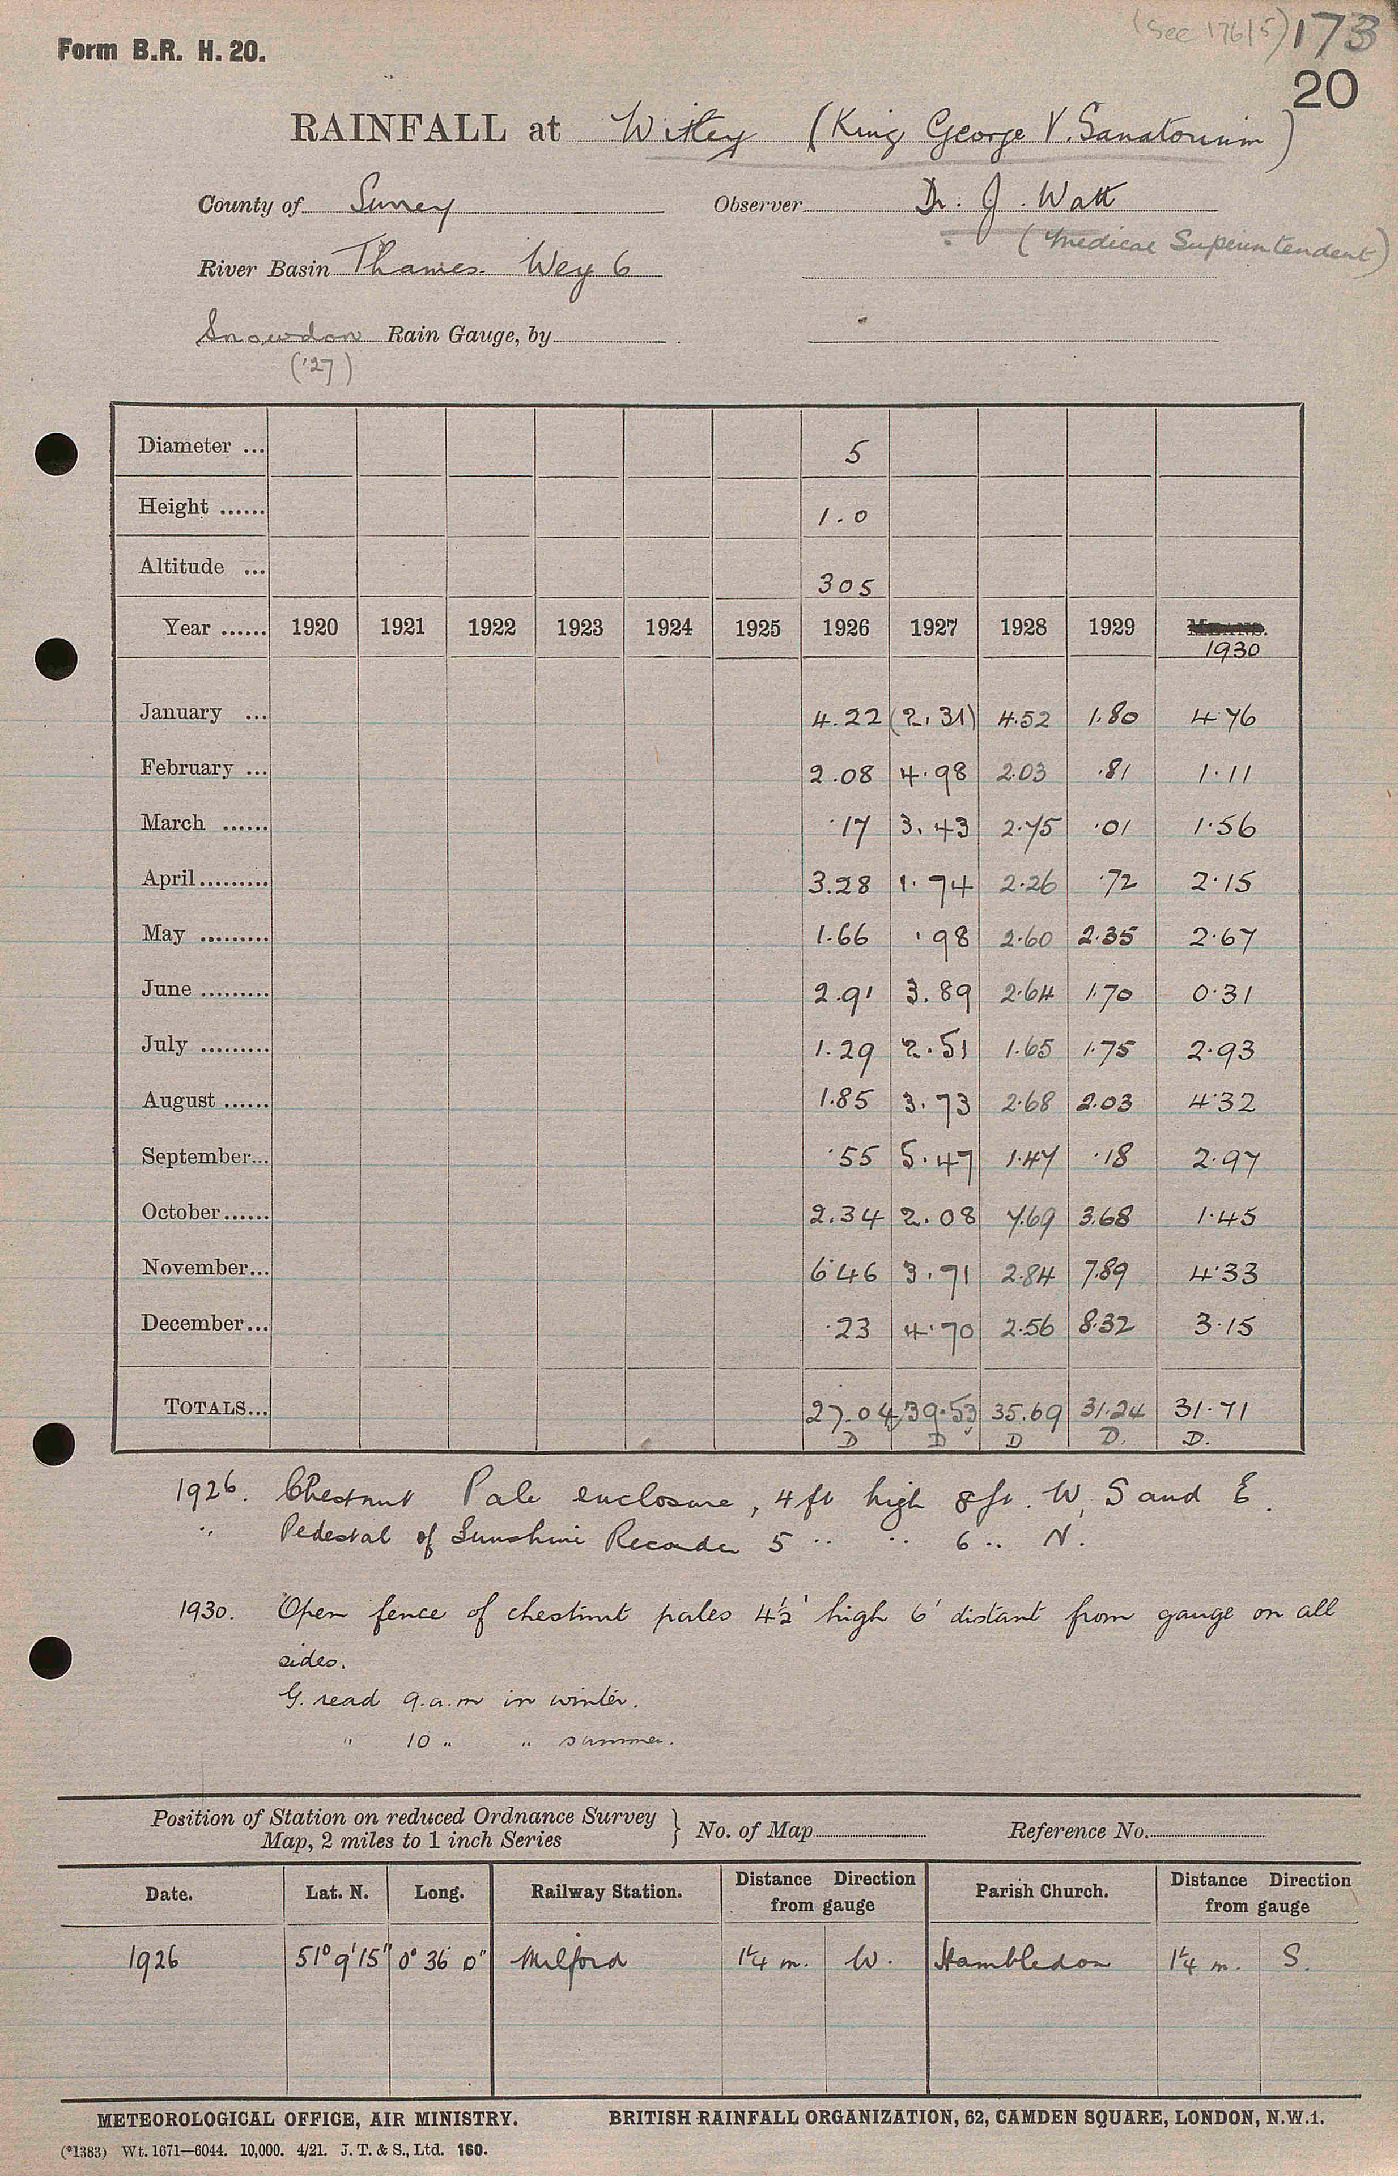 (See 176/5) 173
Form B.R. H. 20.
20
RAINFALL at Witley (King George V. Sanatorium)
County of Surrey Observer Dr. J. Watt
(Medical Superintendent)
River Basin Thames. Wey 6
Snowdon Rain Gauge, by
('27)
Diameter ... 5
Height ...... 1.0
Altitude ... 305
Year ...... 1920 1921 1922 1923 1924 1925 1926 1927 1928 1929 MEANS.
1930
January ... 4.22 (2.31) 4.52 1.80 4.76
February ... 2.08 4.98 2.03 .81 1.11
March ...... .17 3.43 2.75 .01 1.56
April ......... 3.28 1.74 2.26 .72 2.15
May ......... 1.66 .98 2.60 2.35 2.67
June ......... 2.91 3.89 2.64 1.70 0.31
July ......... 1.29 2.51 1.65 1.75 2.93
August ...... 1.85 3.73 2.68 2.03 4.32
September... .55 5.47 1.47 .18 2.97
October ...... 2.34 2.08 7.69 3.68 1.45
November... 6.46 3.71 2.84 7.89 4.33
December... .23 4.70 2.56 8.32 3.15
TOTALS... 27.04 39.53 35.69 31.24 31.71
D D D D. D.
1926. Chestnut Pale enclosure, 4 ft high 8 ft. W, S and E.
" Pedestal of Sunshine Recorder 5 " " 6 " N.
1930. Open fence of chestnut pales 4½' high 6' distant from gauge on all
sides.
G. read 9.a.m in winter.
" 10 " " summer.
Position of Station on reduced Ordnance Survey
Map, 2 miles to 1 inch Series } No. of Map Reference No.
Date. Lat. N. Long. Railway Station. Distance Direction from gauge Parish Church. Distance Direction from gauge
1926 51° 9' 15" 0° 36' 0" Milford 1¼ m. W. Hambledon 1¼ m. S.
METEOROLOGICAL OFFICE, AIR MINISTRY. BRITISH RAINFALL ORGANIZATION, 62, CAMDEN SQUARE, LONDON, N.W.1.
(*1383) Wt. 1671—6044. 10,000. 4/21. J. T. & S., Ltd. 160.